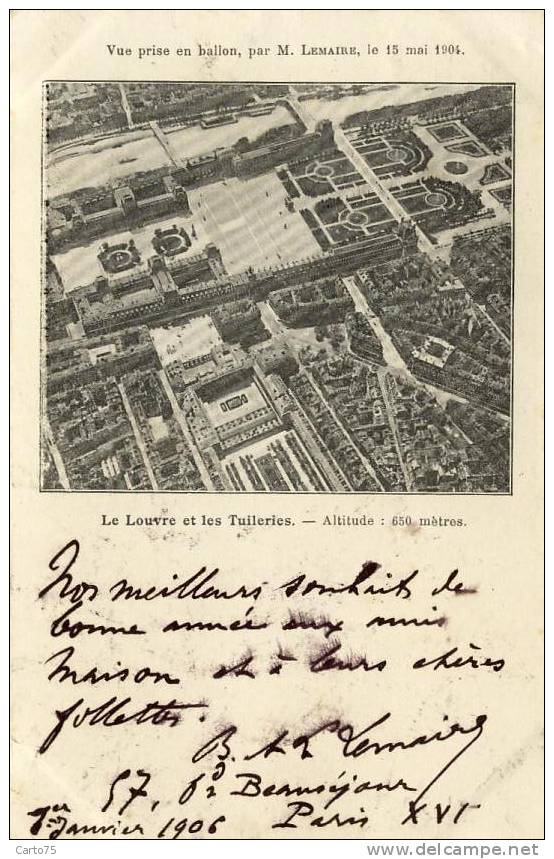 Vue prise en ballon, par M. LEMAIRE, le 15 mai 1904.
Le Louvre et les Tuileries. — Altitude : 650 mètres.
Nos meilleurs souhaits de
bonne année aux amis
Maison et à leurs chères
follettes.
B. et L Lemaire
57, Bd Beauséjour
1er Janvier 1906 Paris XVI
Carto75
http://www.delcampe.net